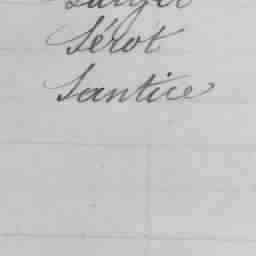 Sérot
Santice